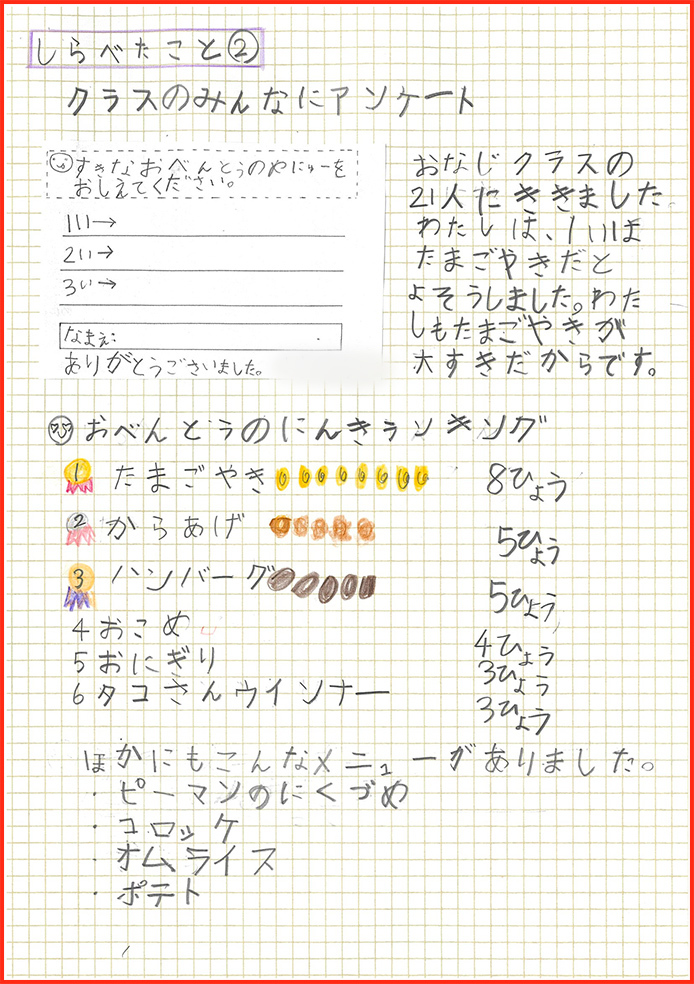 しらべたこと②
クラスのみんなにアンケート
すきなおべんとうのめにゅーを
おしえてください。
1い→
2い→
3い→
なまえ:
ありがとうございました。
おなじクラスの
21人にききました
わたしは、1いは
たまごやきだと
よそうしました。わた
しもたまごやきが
大すきだからです。
おべんとうのにんきランキング
1 たまごやき 8ひょう
2 からあげ 5ひょう
3 ハンバーグ 5ひょう
4 おこめ 4ひょう
5 おにぎり 3ひょう
6 タコさんウインナー 3ひょう
ほかにもこんなメニューがありました。
・ピーマンのにくづめ
・コロッケ
・オムライス
・ポテト